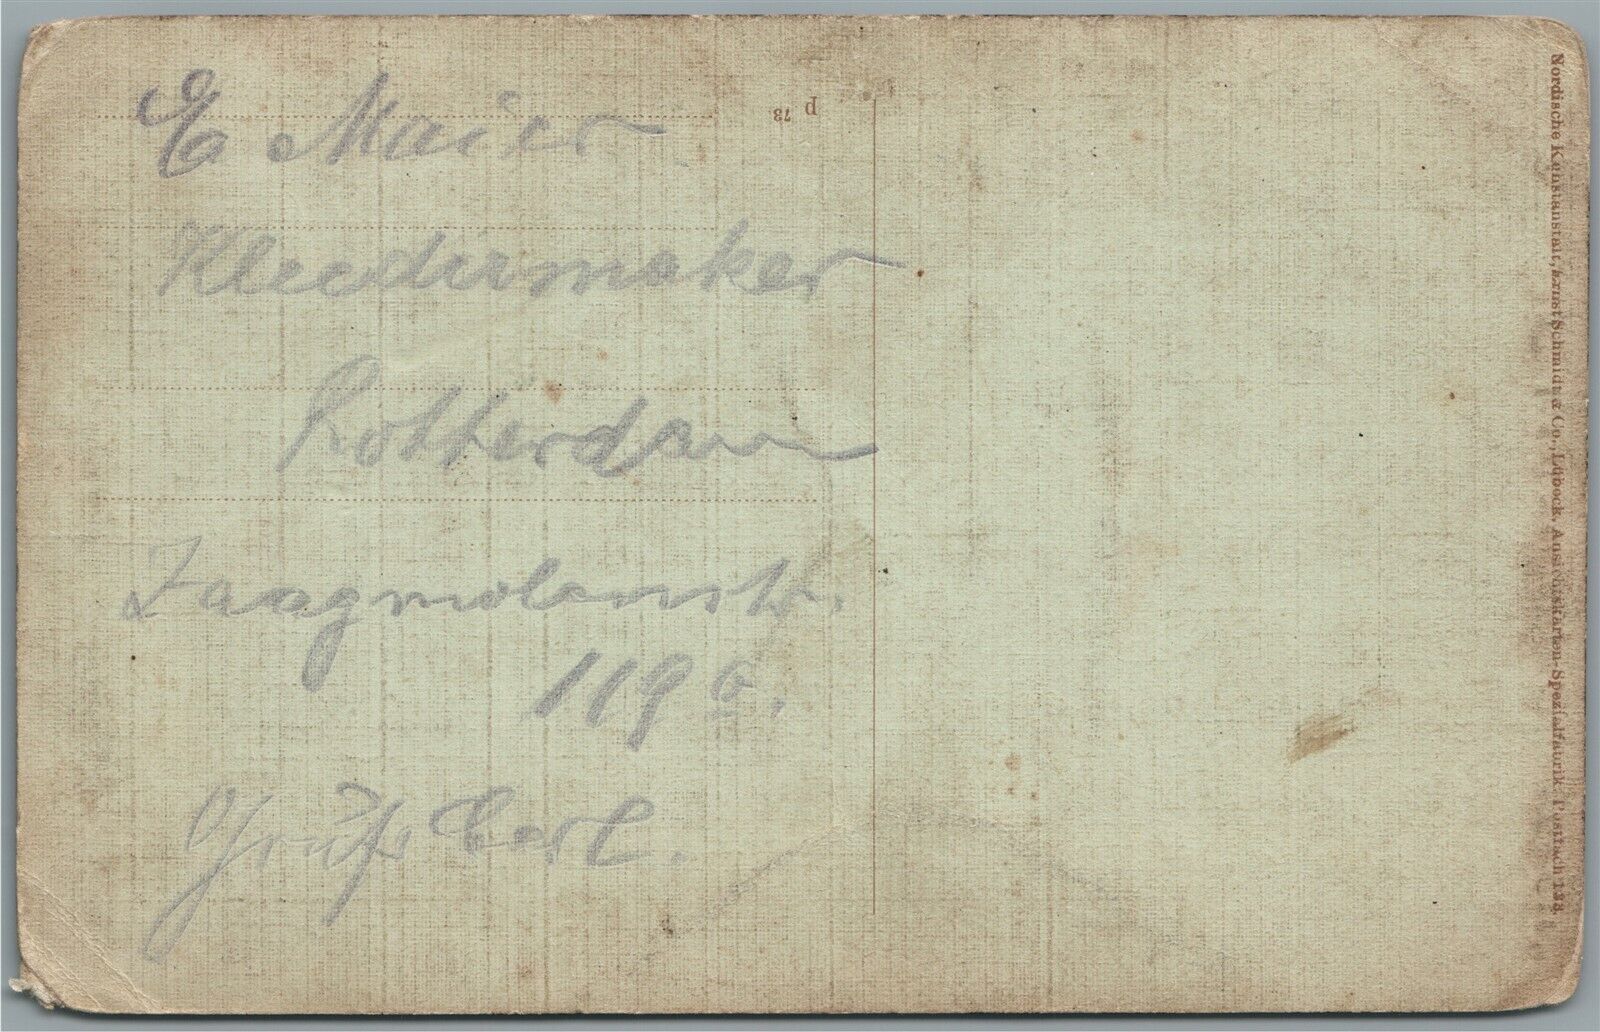 E Maier
Kleedermaker
Rotterdam
Zaagmolenstr.
119 b.
Gruß Carl.
p 73
Nordische Kunstanstalt, Ernst Schmidt & Co., Lübeck, Ansichtskarten-Spezialfabrik. Postfach 133.